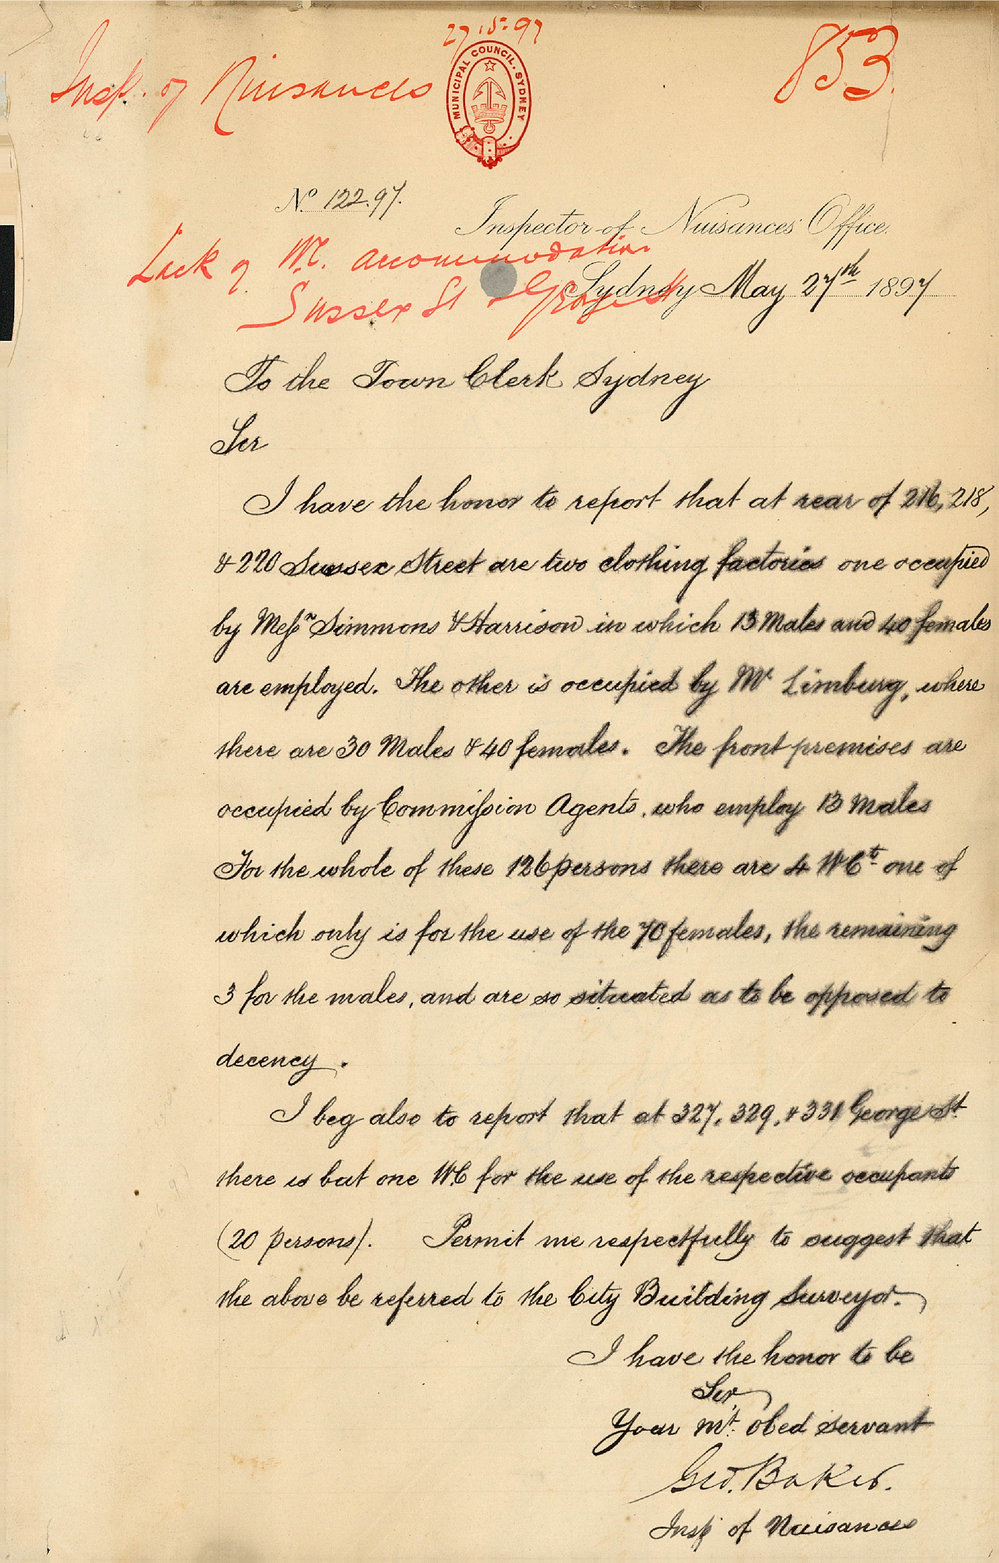 27.5.97
Insp. of Nuisances
853
MUNICIPAL COUNCIL. SYDNEY
No. 122.97.
Inspector of Nuisances Office.
Lack of W.C. accommodation
Sydney May 27th 1897
Sussex St & George St
To the Town Clerk Sydney
Sir
I have the honor to report that at rear of 216, 218,
& 220 Sussex Street are two clothing factories one occupied
by Messrs Simmons & Harrison in which 13 Males and 40 females
are employed. The other is occupied by Mr Limburg, where
there are 30 Males & 40 females. The front premises are
occupied by Commission Agents. who employ 13 Males
For the whole of these 126 persons there are 4 WCts one of
which only is for the use of the 70 females, the remaining
3 for the males, and are so situated as to be opposed to
decency.
I beg also to report that at 327, 329, & 331 George St
there is but one WC for the use of the respective occupants
(20 persons). Permit me respectfully to suggest that
the above be referred to the City Building Surveyor.
I have the honor to be
Sir,
Your mt. obed servant
Geo. Baker.
Insp of Nuisances